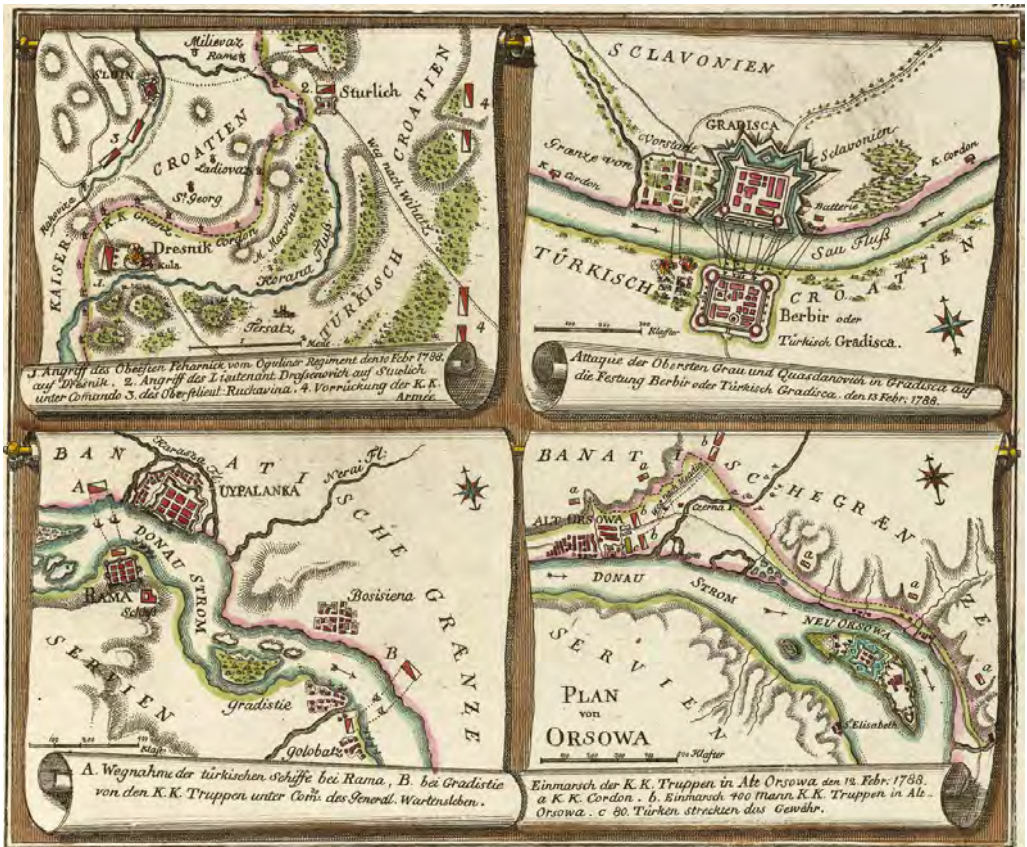 Milievaz
Rame
SLUIN
2. Sturlich
4
3
CROATIEN
CROATIEN
Ladiovaz
Weg nach Wihatz
St. Georg
K.K. Grenz Cordon
KAISER
Dresnik
Kula
M. Mosvina
Korana Fluß
1.
Tersatz
TÜRKISCH
4
1 Meile
1. Angriff des Obersten Peharnick vom Oguliner Regiment den 10 Febr 1788.
auf Dresnik. 2. Angriff des Lieutenant Drassenovich auf Sturlich
unter Comando 3. des Oberstlieut. Ruckavina. 4. Vorrückung der K.K.
Armée.
SCLAVONIEN
GRADISCA
Vorstadt
Grænze von
Sclavonien
K. Cordon
K. Cordon
Batterie
Sau Fluß
TÜRKISCH
CROATIEN
Berbir oder
Türkisch Gradisca.
100 200 300 Klafter
Attaque der Obersten Grau und Quasdanovich in Gradisca auf
die Festung Berbir oder Türkisch Gradisca. den 13 Febr. 1788.
BANATISCHE GRÆNZE
Karasza Fl.
Nerai Fl:
A
UYPALANKA
DONAU STROM
RAMA
Schloß
Bosisiena
SERVIEN
B
Gradistie
Golobatz
Klaft.
A. Wegnahme der türkischen Schiffe bei Rama, B. bei Gradistie
von den K.K. Truppen unter Com. des General. Wartensleben.
BANATISCHE GRÆNZE
a
b
b
Weg nach Meadia
ALT ORSOWA
Czerna F.
a
a
DONAU STROM
NEU ORSOWA
a
SERVIEN
St. Elisabeth
PLAN
von
ORSOWA
Klafter
Einmarsch der K.K. Truppen in Alt Orsowa den 12. Febr. 1788.
a K.K. Cordon. b. Einmarsch 400 Mann K.K. Truppen in Alt-
Orsowa. c 80. Türken streckten das Gewähr.